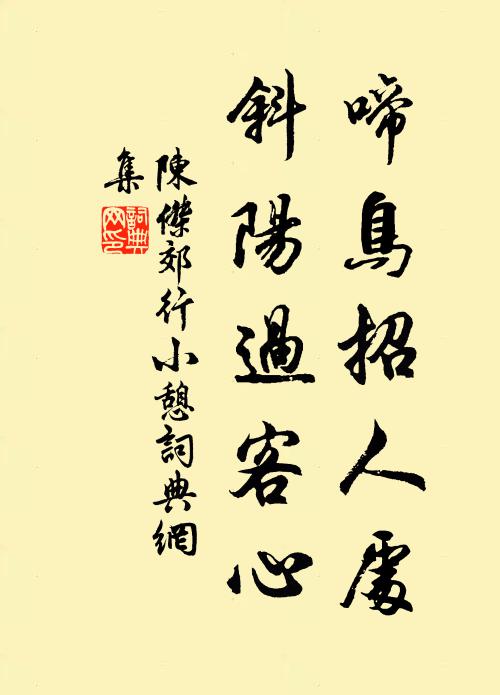 啼鳥招人處
斜陽過客心
陳傑郊行小憩詞典網
集
詞典網印